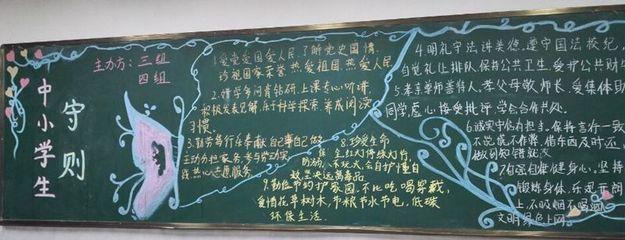 中小学生
守则
主办方：三组
四组
1.爱党爱国爱人民。了解党史国情，
珍视国家荣誉，热爱祖国，热爱人民
2.好学多问肯钻研。上课专心听讲，
积极发表见解，乐于科学探索，养成阅读
习惯。
3.勤劳笃行乐奉献。自己事自己做，
主动分担家务，参与劳动实
践，热心志愿服务。
4.明礼守法讲美德。遵守国法校纪，
自觉礼让排队，保持公共卫生，爱护公共财
5.孝亲尊师善待人。孝父母敬师长，爱集体助
同学，虚心接受批评，学会合作共处。
6.诚实守信有担当。保持言行一致，
不说谎不作弊，借东西及时还，
做到知错就改
7.自强自律健身心。坚持
锻炼身体，乐观开朗向
上，不吸烟不喝酒，
文明绿色上网。
8.珍爱生命
保安全。红灯停绿灯行，
防溺水不玩火，会自护懂自
救，坚决远离毒品
9.勤俭节约护家园。不比吃喝穿戴，
爱惜花草树木，节粮节水节电，低碳
环保生活。